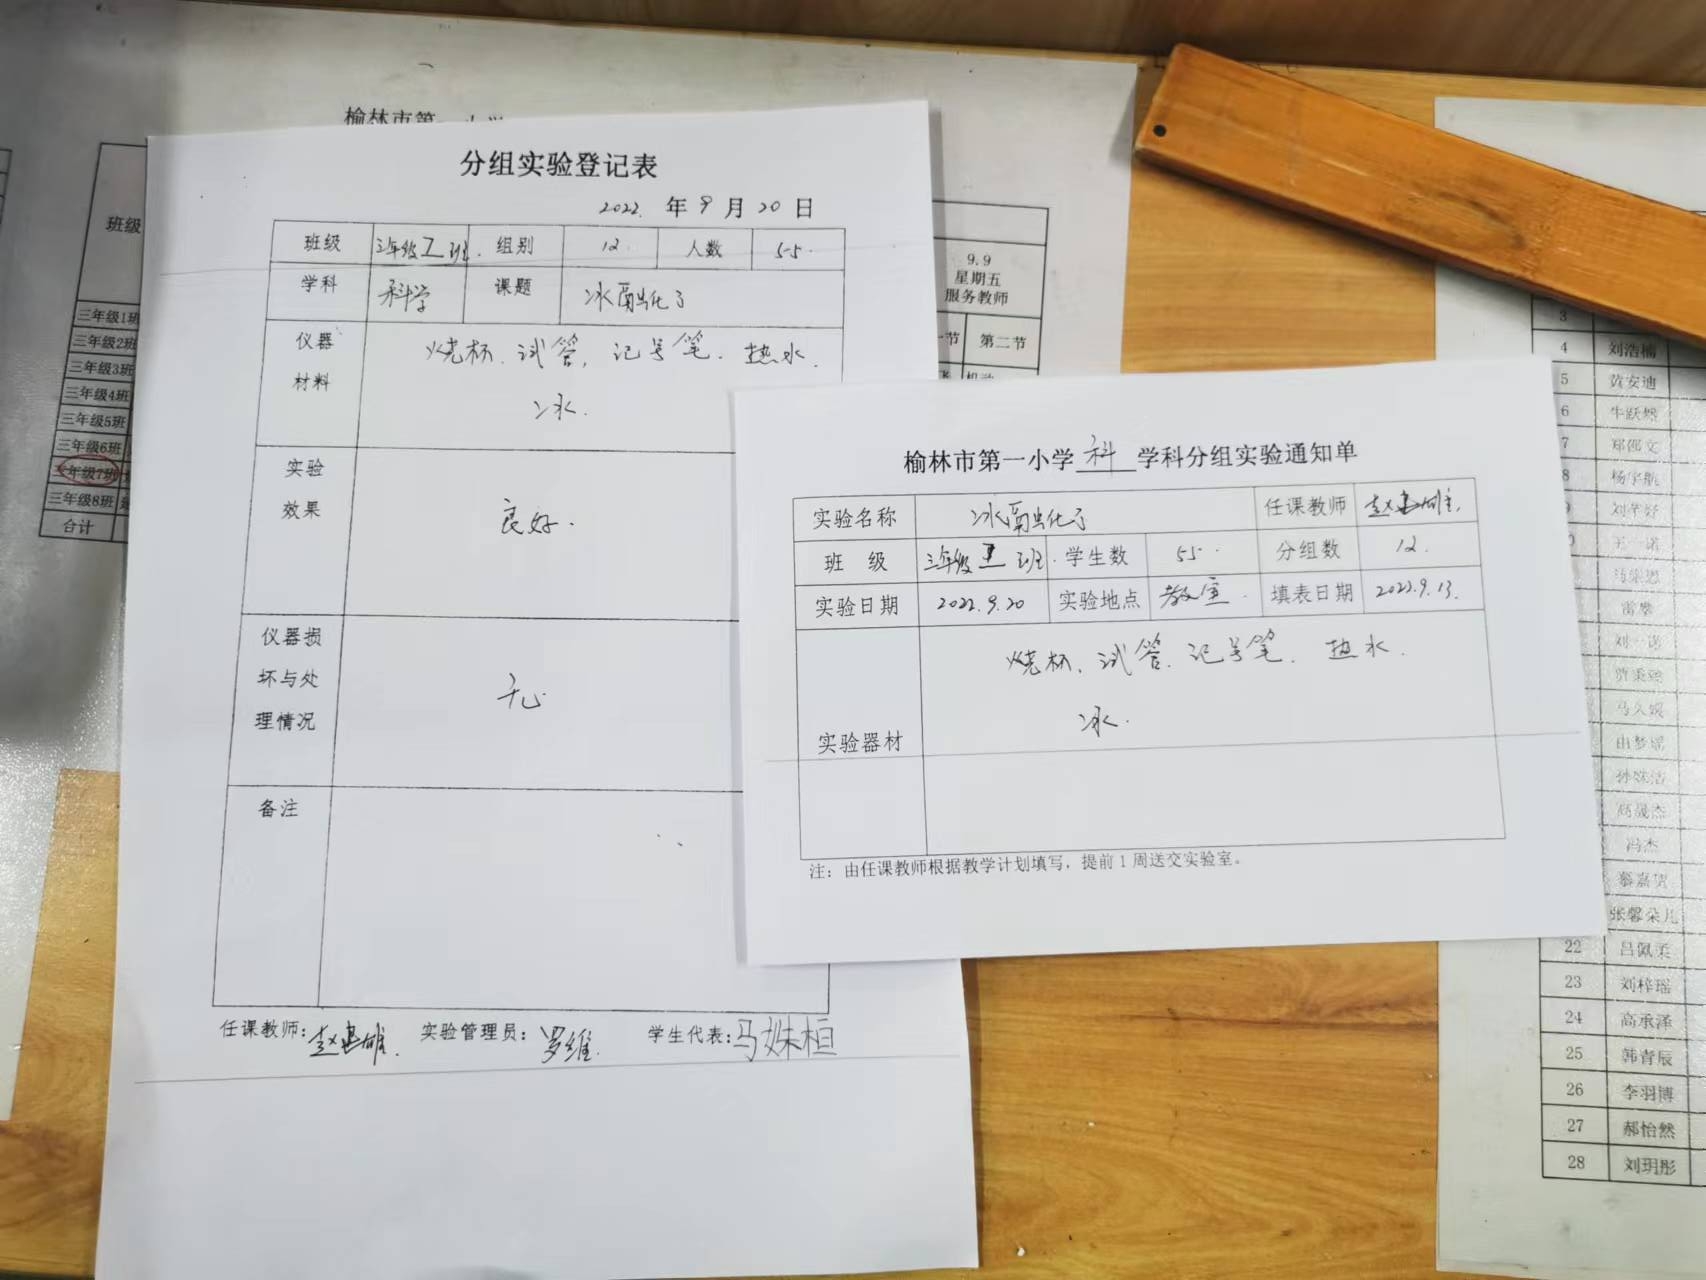 榆林市第一小学
班级
三年级1班
三年级2班
三年级3班
三年级4班
三年级5班
三年级6班
三年级7班
三年级8班
合计
9.9
星期五
服务教师
第二节
分组实验登记表
2022. 年 9 月 20 日
班级 三年级 班. 组别 12. 人数 55.
学科 科学 课题 冰融化了
仪器材料 烧杯、试管、记号笔、热水、
冰.
实验效果 良好.
仪器损坏与处理情况 无
备注
任课教师: 赵建雄. 实验管理员: 罗维. 学生代表: 马姝桓
榆林市第一小学 科 学科分组实验通知单
实验名称 冰融化了 任课教师 赵建雄.
班 级 三年级 班. 学生数 55. 分组数 12.
实验日期 2022.9.20 实验地点 教室. 填表日期 2022.9.13.
实验器材 烧杯、试管、记号笔、热水.
冰.
注：由任课教师根据教学计划填写，提前1周送交实验室。
3
4 刘浩楠
5 黄安迪
6 牛跃然
7 郑邵文
8 杨宇航
刘芊妤
王一诺
雷攀
刘一诺
马久媛
由梦瑶
孙姝洁
高晟杰
冯杰
慕嘉贺
张馨朵儿
22 吕佩柔
23 刘梓瑶
24 高承泽
25 韩青辰
26 李羽博
27 郝怡然
28 刘玥彤